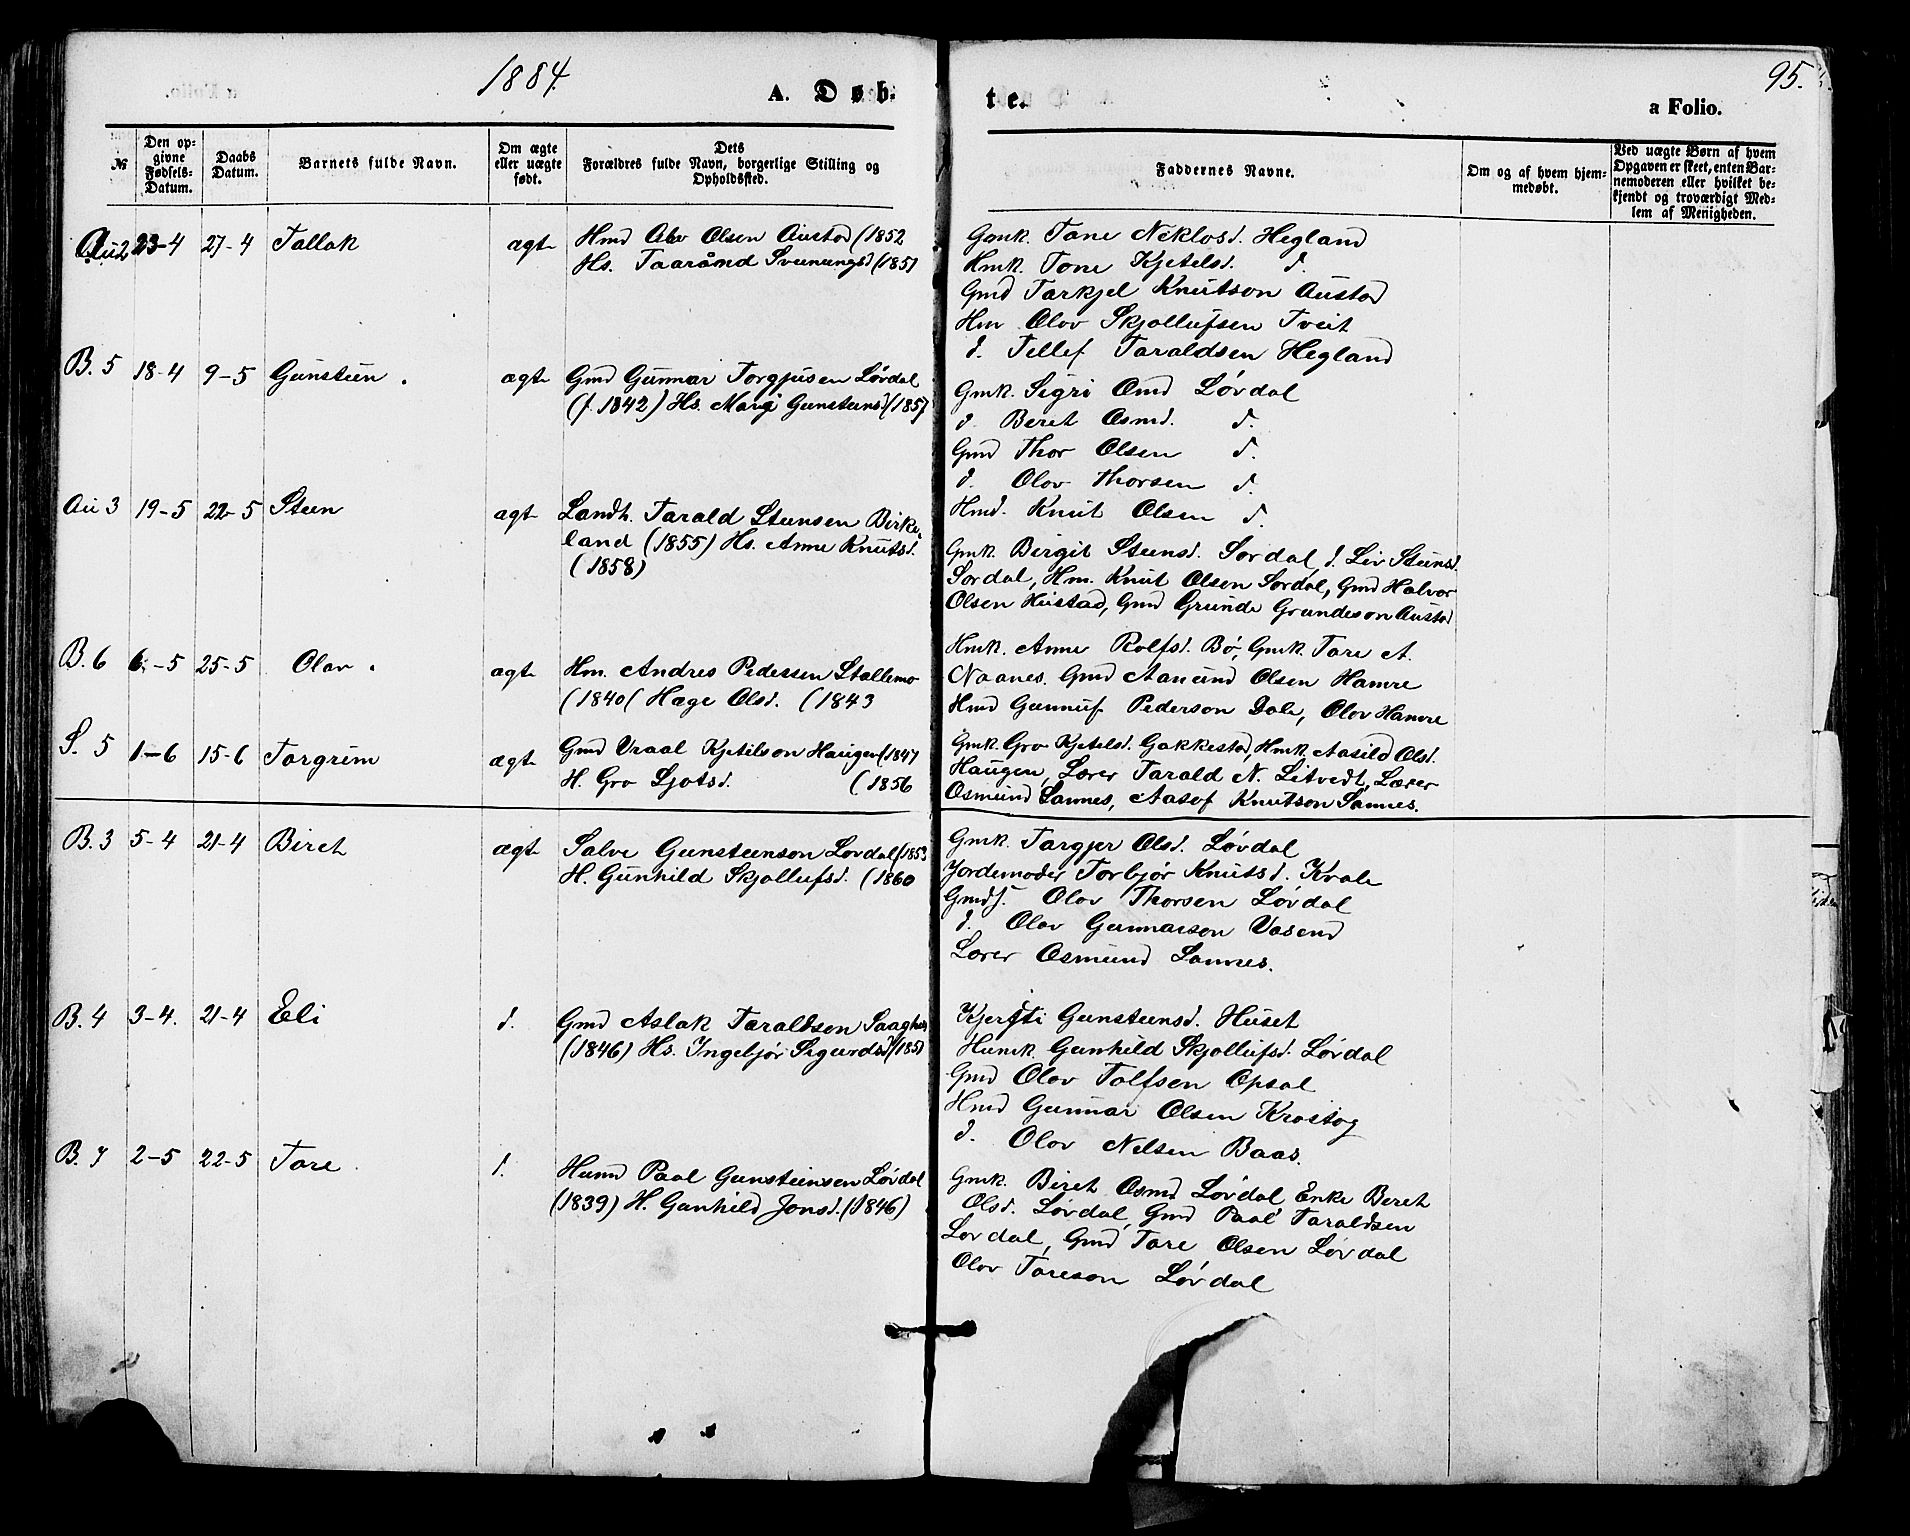 1884.
A. Døb-
te.
95.
a Folio.
№
Den op-
givne
Fødsels-
Datum.
Daabs
Datum.
Barnets fulde Navn.
Om ægte
eller uægte
født.
Dets
Forældres fulde Navn, borgerlige Stilling og
Opholdssted.
Faddernes Navne.
Om og af hvem hjem-
medøbt.
Ved uægte Børn af hvem
Opgaven er skeet, enten Bar-
nemoderen eller hvilket be-
kjendt og troværdigt Med-
lem af Menigheden.
Au 2 23-4 27-4 Tallak ægte
Hmd Alv Olsen Austad (1852
Hs. Taarånd Sveinungsd (1851
Gmk. Tone Neklosd. Hegland
Hmk. Tone Kjetelsd. d.
Gmd Tarkjel Knutson Austad
Hm Olov Skjollufsen Tveit
d. Tellef Taraldsen Hegland
B. 5 18-4 9-5 Gunsteen. ægte
Gmd Gunnar Torgjusen Løvdal
(f. 1842) Hs. Margi Gunsteensd (1857
Gmk. Sigri Omd Løvdal
d. Beret Osmd. d.
Gmd Thor Olsen d.
d. Olov Thorsen d.
Hmd. Knut Olsen d.
Au 3 19-5 22-5 Steen ægt
Landh. Tarald Steensen Birke-
land (1855) Hs. Anne Knutsd.
(1858)
Gmk. Birgit Steensd. Sordal, d. Liv Steensd.
Sordal, Hm. Knut Olsen Sordal, Gmd Halvor
Olsen Hustad, Gmd Grunde Grundeson Austad
B. 6 6-5 25-5 Olav. ægte
Hm. Andres Pedersen Stallemo
(1840( Hæge Olsd. (1843
Hmk. Anne Rolfsd. Bø, Gmk Tare A.
Naanes. Gmd Aanund Olsen Hamre
Hmd Gunnuf Pederson Dale, Olov Hamre
S. 5 1-6 15-6 Torgrim ægte
Gmd Vraal Kjetilson Haugen (1847
H. Gro Ljotsd. (1856
Gmk. Gro Kjetelsd. Gakkestad, Hmk. Aasild Olsd.
Haugen, Lærer Tarald N. Litvedt, Lærer
Osmund Sannes, Aasof Knutson Sannes.
B. 3 5-4 21-4 Biret ægte
Salve Gunsteenson Løvdal (1853
H. Gunhild Skjollufsd. (1860
Gmk. Targjer Olsd. Løvdal
Jordemoder Torbjør Knutsd. Kvale
Gmds. Olov Thorsen Løvdal
d. Olov Gunnarson Vasend
Lærer Osmund Sannes.
B. 4 3-4. 21-4 Eli d.
Gmd Aslak Taraldsen Saaghus
(1846) Hs. Ingebjør Sigurdsd (1851
Kjersti Gunsteensd. Huset
Humk. Gunhild Skjollufsd. Løvdal
Gmd Olov Tolfsen Opsal
Hmd Gunnar Olsen Krostøg
d. Olov Nelsen Baas.
B. 7 2-5 22-5 Tore d.
Humd Paal Gunsteensen Løvdal
(1839) H. Gunhild Jonsd. (1846)
Gmk. Biret Osmd Løvdal, Enke Beret
Olsd. Løvdal, Gmd Paal Taraldsen
Løvdal, Gmd Tore Olsen Løvdal
Olov Toreson Løvdal